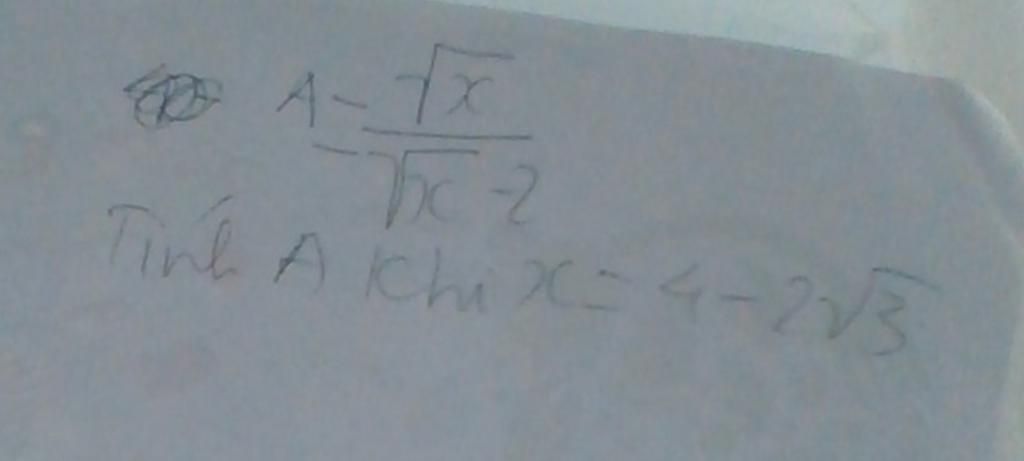 A = \frac{\sqrt{x}}{\sqrt{x} - 2}
Tính A khi x = 4 - 2\sqrt{3}